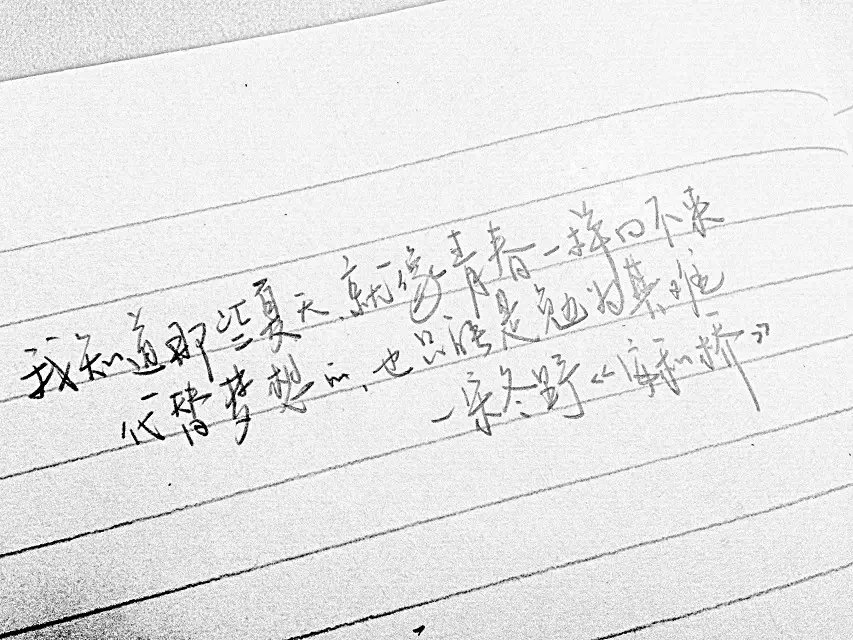 我知道那些夏天、就像青春一样回不来
代替梦想的、也只能是勉为其难
—宋冬野《安和桥》